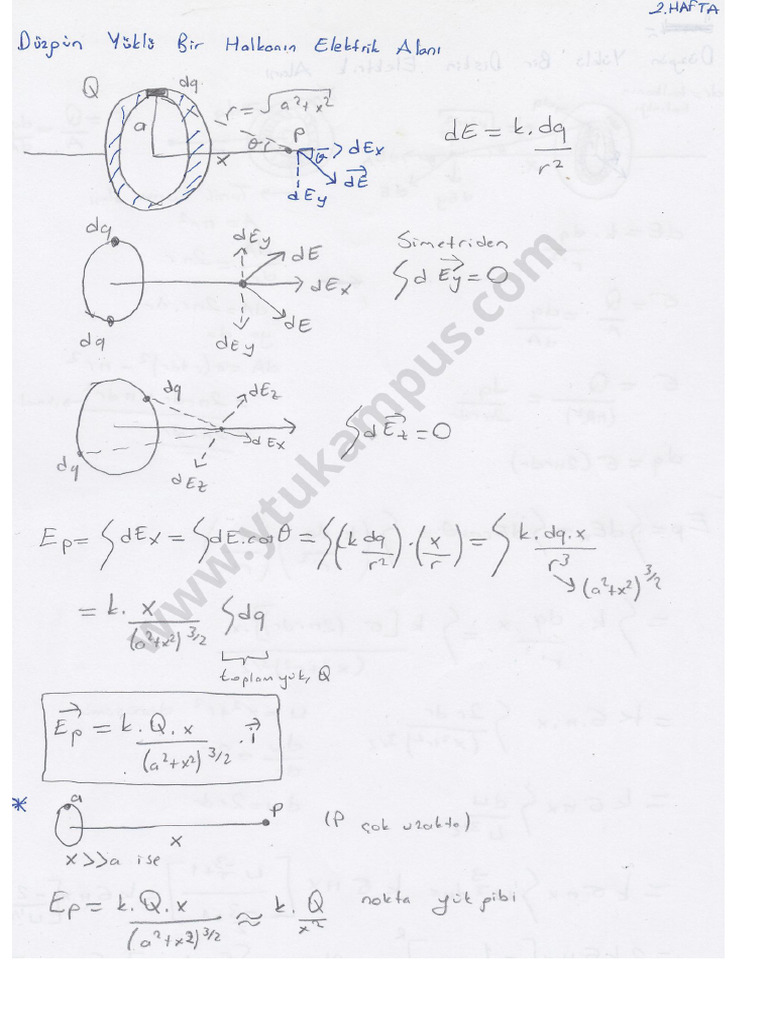 2. HAFTA
Düzgün Yüklü Bir Halkanın Elektrik Alanı
Q dq
a r = √(a²+x²)
θ P θ dEx
x dE⃗
dEy
dE = k.dq / r²
dq dEy dE
dEx
dq dEy dE
Simetriden
∫dE⃗y = 0
dq dEz
dEx
dq dEz
∫dE⃗z = 0
Ep = ∫dEx = ∫dE.cosθ = ∫(k dq / r²).(x / r) = ∫ k.dq.x / r³
→ (a²+x²)^3/2
= k. x / (a²+x²)^3/2 ∫dq
toplam yük, Q
E⃗p = k.Q.x / (a²+x²)^3/2 . i⃗
* a P (P çok uzakta)
x
x>>a ise
Ep = k.Q.x / (a²+x2)^3/2 ≈ k.Q / x² nokta yük gibi
www.ytukampus.com